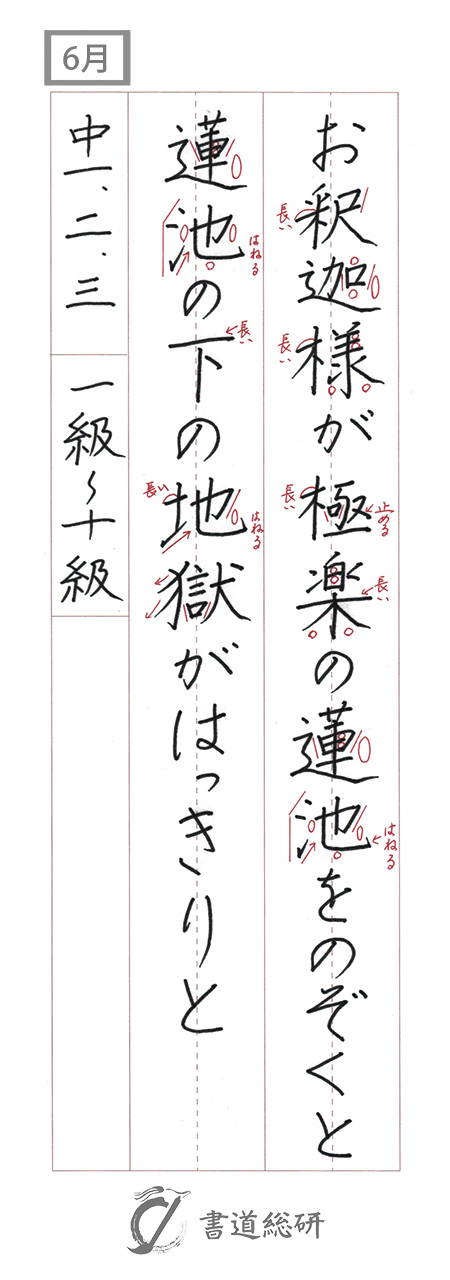 6月
お釈迦様が極楽の蓮池をのぞくと
長い
長い
長い
止める
長い
はねる
蓮池の下の地獄がはっきりと
はねる
長い
長い
はねる
中一、二、三
一級〜十級
書道総研